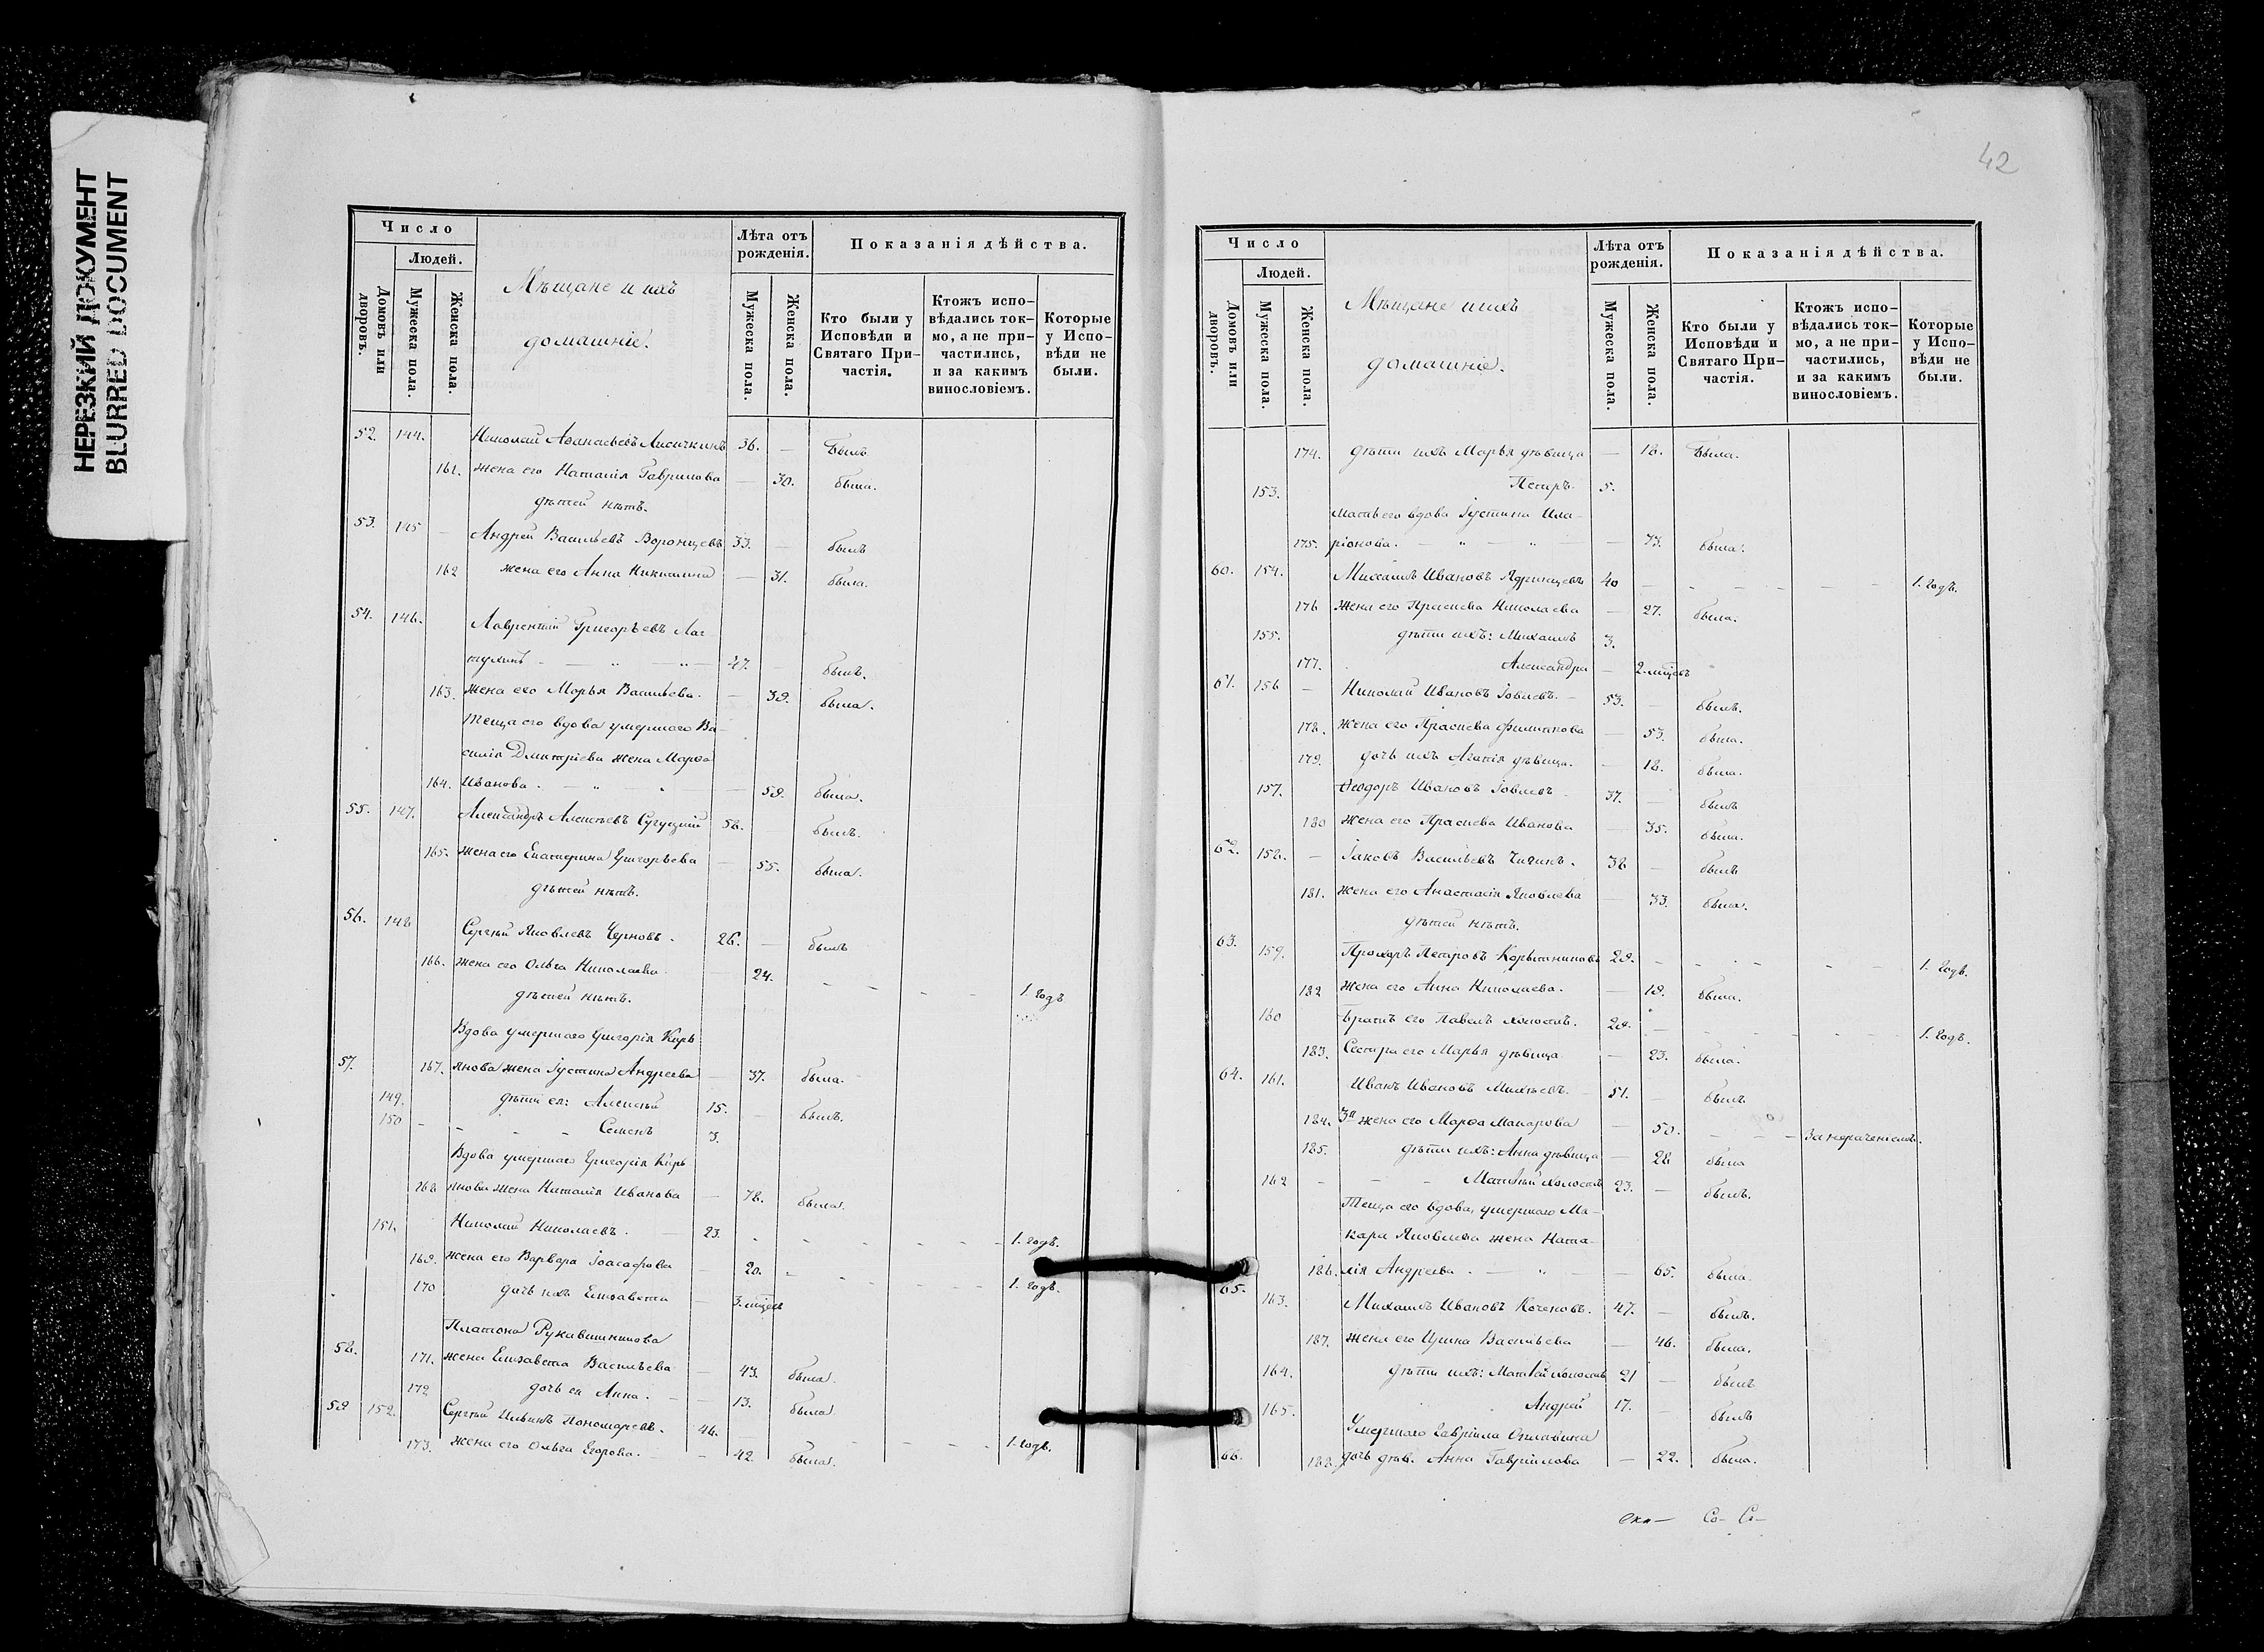 НЕРЕЗКИЙ ДОКУМЕНТ
BLURRED DOCUMENT
Число
Людей.
Домовъ или дворовъ.
Мужеска пола.
Женска пола.
Мѣщане и ихъ
домашніе.
Лѣта отъ рожденія.
Мужеска пола.
Женска пола.
Показанія дѣйства.
Кто были у Исповѣди и Святаго При-частія.
Ктожъ испо-вѣдались ток-мо, а не при-частились, и за какимъ винословіемъ.
Которые у Испо-вѣди не были.
52. 144. Николай Аѳанасьевъ Лисичкинъ 36. — Былъ
161. жена его Наталія Гаврилова — 30. была.
дѣтей нѣтъ.
53. 145 — Андрей Васильевъ Воронцевъ 33. — былъ
162 жена его Анна Никитина — 31. была.
54. 146. Лаврентій Григорьевъ Лас-
тухинъ — „ — „ — 47. — былъ.
163. жена его Марья Васильева. — 39. была.
Теща его вдова умершаго Ва-
силія Дмитріева жена Марѳа
164. Иванова. — „ — 59. была.
55. 147. Александръ Алексѣевъ 56. былъ.
165. жена его Екатерина Григорьева — 55. была.
дѣтей нѣтъ.
56. 148 Сергѣй Яковлевъ Черновъ. 26. — былъ
166. жена его Ольга Николаева 24. - - - - 1. годъ
дѣтей нѣтъ.
Вдова умершаго Григорія Кирь
57. 167. янова жена Іустина Андреева — 37. была.
149. дѣти ея: Алексѣй 15. — былъ.
150 - - - - Семенъ 3.
Вдова умершаго Григорія Кирь
168 янова жена Наталія Иванова — 78. была.
151. Николай Николаевъ. — 23. - - - - - 1. годъ.
169. жена его Варвара Іоасафова — 20. - - - - - 1. годъ.
170 дочь ихъ Елизавета — 3. мѣсяц
Платона Рукавишникова
58. 171. жена Елизавета Васильева — 43. была.
172 дочь ея Анна. — 13. была
59 152. Сергѣй Ильинъ Пономаревъ. 46. — - - - 1. годъ.
173. жена его Ольга Егорова. — 42 была.
42
Число
Людей.
Домовъ или дворовъ.
Мужеска пола.
Женска пола.
Мѣщане и ихъ
домашніе.
Лѣта отъ рожденія.
Мужеска пола.
Женска пола.
Показанія дѣйства.
Кто были у Исповѣди и Святаго При-частія.
Ктожъ испо-вѣдались ток-мо, а не при-частились, и за какимъ винословіемъ.
Которые у Испо-вѣди не были.
174. дѣти ихъ Марья дѣвица — 18. Была.
153. Петръ 5.
Мать его вдова Іустина Ила-
175. ріонова. — „ — „ — 73. была.
60. 154. Михаилъ Ивановъ Ядринцевъ 40 - - - - - 1. годъ.
176 жена его Праскева Николаева — 27. была.
155. дѣти ихъ: Михаилъ 3.
177. Александра — 2. мѣсяц
61. 156 — Николай Ивановъ Іовлевъ. — 53. — былъ.
178. жена его Праскева Филиппова — 53. была.
179. дочь ихъ Агапія дѣвица. — 18. была.
157. Ѳеодоръ Ивановъ Іовлевъ 37. — былъ
180 жена его Праскева Иванова — 35. была.
62. 158. — Іаковъ Васильевъ Чигинъ. 38 — былъ
181. жена его Анастасія Яковлева — 33. была.
дѣтей нѣтъ.
63. 159. Прохоръ Петровъ Корытниковъ 29. - - - - - 1. годъ.
182 жена его Анна Николаева. — 19. была.
160 Братъ его Павелъ холостъ. 20. - - - - - 1. годъ.
183. Сестра его Марья дѣвица — 23. была.
64. 161. Иванъ Ивановъ Михѣевъ. — 51. — былъ
184. 3я жена его Марѳа Макарова — 50. - - - За нераченіемъ.
185. дѣти ихъ: Анна дѣвица — 28 была
162 - - - Матвѣй холостъ 23. — былъ.
Теща его вдова умершаго Ма-
кара Яковлева жена Ната-
186. лія Андреева. — „ — — 65. была.
65. 163. Михаилъ Ивановъ Коченовъ. 47. — былъ.
187. жена его Ирина Васильева — 46. была.
164. дѣти ихъ: Матвѣй холостъ 21 — былъ
165. Андрей 17. — былъ
Умершаго Гавріила
66. 188. дочь дѣв. Анна Гавріилова — 22. была.